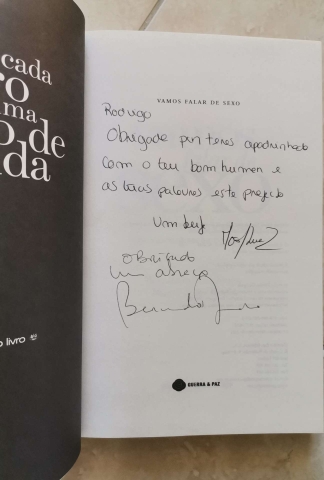 cada
ro
ma
o de
da
o livro
VAMOS FALAR DE SEXO
Rodrigo
Obrigada por teres apadrinhado
com o teu bom humor e
as tuas palavras este projecto
Um beijo
Obrigado
um abraço
Bernardo
GUERRA & PAZ